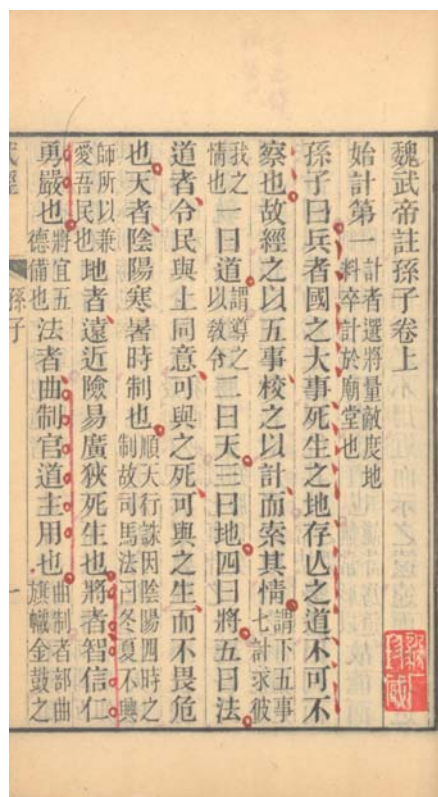 魏武帝註孫子卷上
始計第一計者選將量敵度地料卒計於廟堂也
孫子曰兵者國之大事死生之地存亾之道不可不
察也故經之以五事校之以計而索其情謂下五事七計求彼
我之情也一曰道謂導之以教令二曰天三曰地四曰將五曰法
道者令民與上同意可與之死可與之生而不畏危
也天者陰陽寒暑時制也順天行誅因陰陽四時之制故司馬法曰冬夏不興
師所以兼愛吾民也地者遠近險易廣狹死生也將者智信仁
勇嚴也將宜五德備也法者曲制官道主用也曲制者部曲旗幟金鼓之
孫子
一